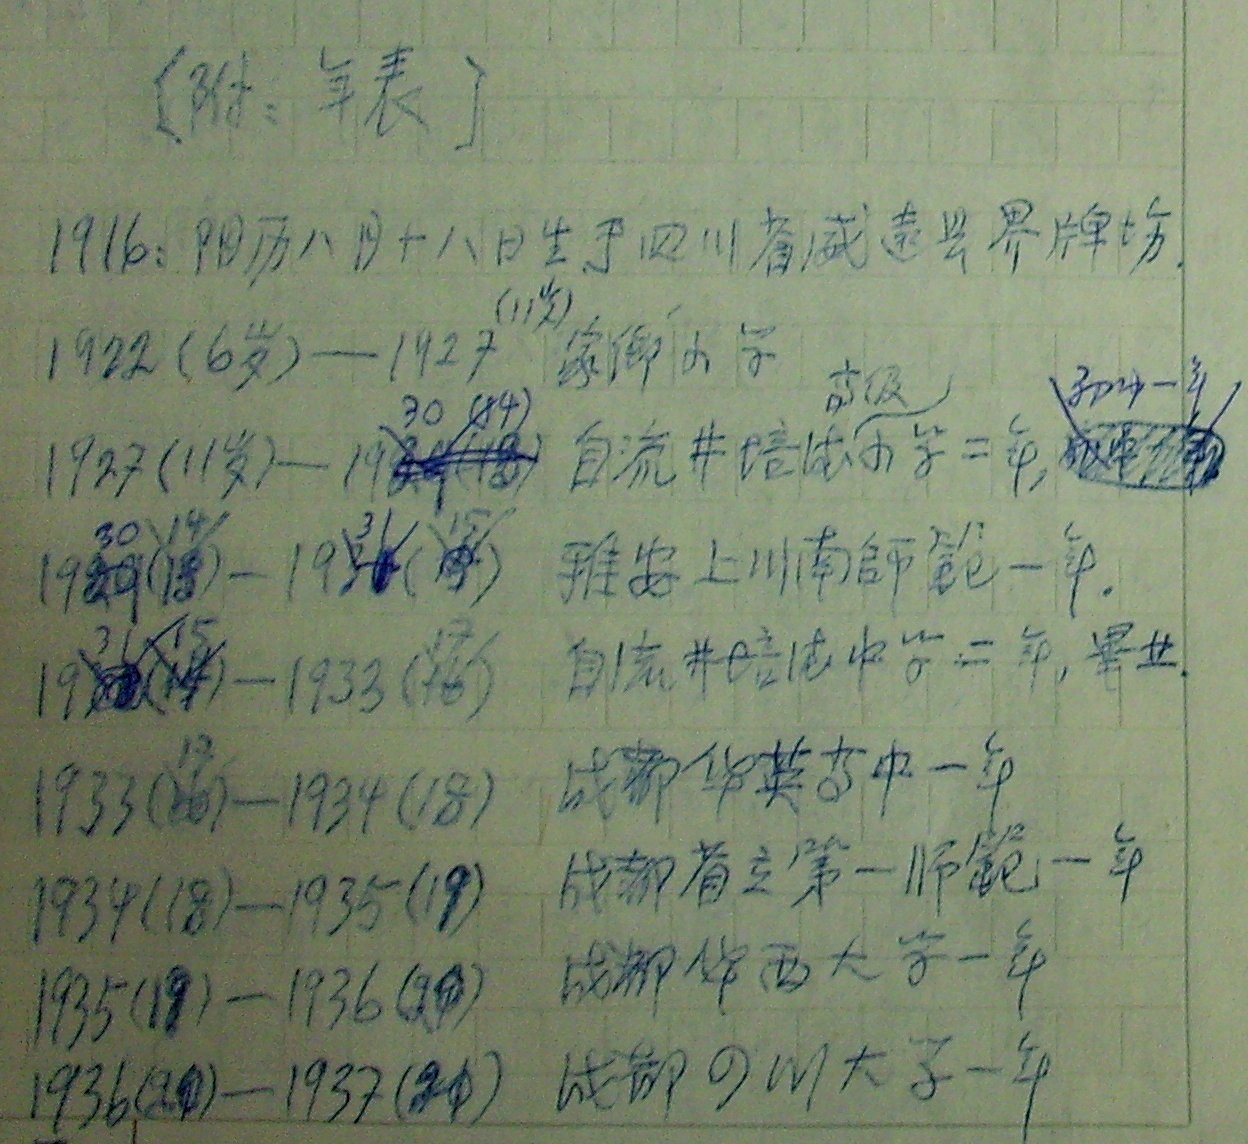 〔附：年表〕
1916：阳历八月十八日生于四川省威远县界牌坊.
1922(6岁)—1927(11岁) 家乡小学
1927(11岁)—1930(14) 自流井培德高级小学二年, 初中一年
1930(14)—1931(15) 雅安上川南師範一年.
1931(15)—1933(17) 自流井培德中学二年, 畢业.
1933(17)—1934(18) 成都华英高中一年
1934(18)—1935(19) 成都省立第一师範一年
1935(19)—1936(20) 成都华西大学一年
1936(20)—1937(21) 成都四川大学一年